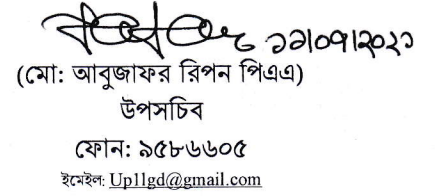 ১১/০৭/২০২১
(মো: আবুজাফর রিপন পিএএ)
উপসচিব
ফোন: ৯৫৮৬৬০৫
ইমেইল: Up1lgd@gmail.com